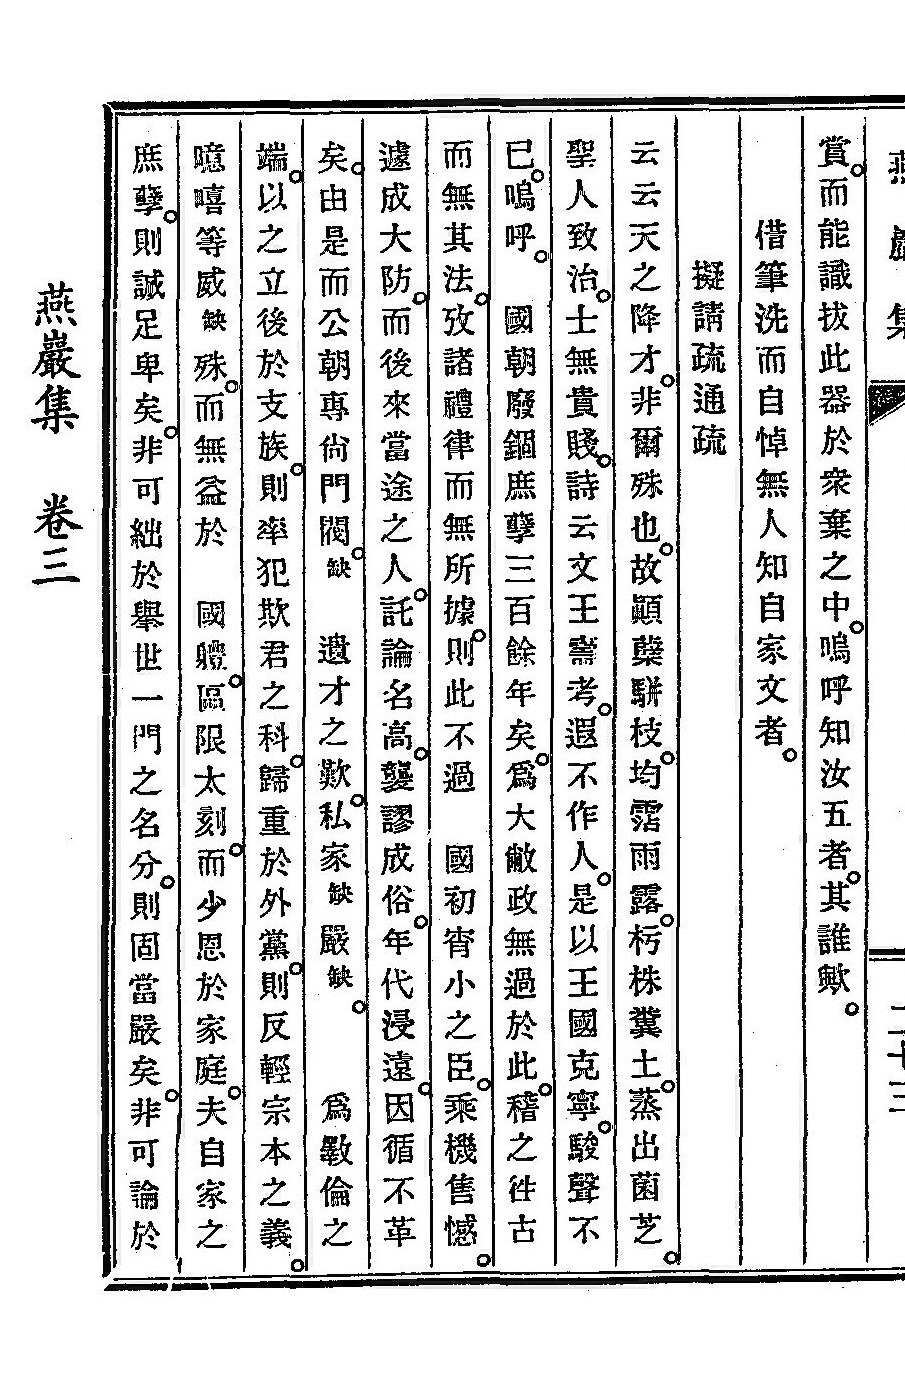 燕巖集 二十三
賞。而能識拔此器於衆棄之中。嗚呼知汝五者。其誰歟。
借筆洗而自悼無人知自家文者。
擬請疏通疏
云云天之降才。非爾殊也。故顚蘖騈枝。均霑雨露。朽株糞土。蒸出菌芝。
聖人致治。士無貴賤。詩云文王壽考。遐不作人。是以王國克寧。駿聲不
已。嗚呼。　國朝廢錮庶孼三百餘年矣。爲大敝政無過於此。稽之往古
而無其法。攷諸禮律而無所據。則此不過　國初宵小之臣。乘機售憾。
遽成大防。而後來當途之人。託論名高。襲謬成俗。年代浸遠。因循不革
矣。由是而公朝專尙門閥。缺　遺才之歎。私家缺嚴缺。　爲斁倫之
端。以之立後於支族。則率犯欺君之科。歸重於外黨。則反輕宗本之義。
噫嘻等威缺殊。而無益於　國軆。區限太刻。而少恩於家庭。夫自家之
庶孼。則誠足卑矣。非可絀於擧世一門之名分。則固當嚴矣。非可論於
燕巖集　卷三